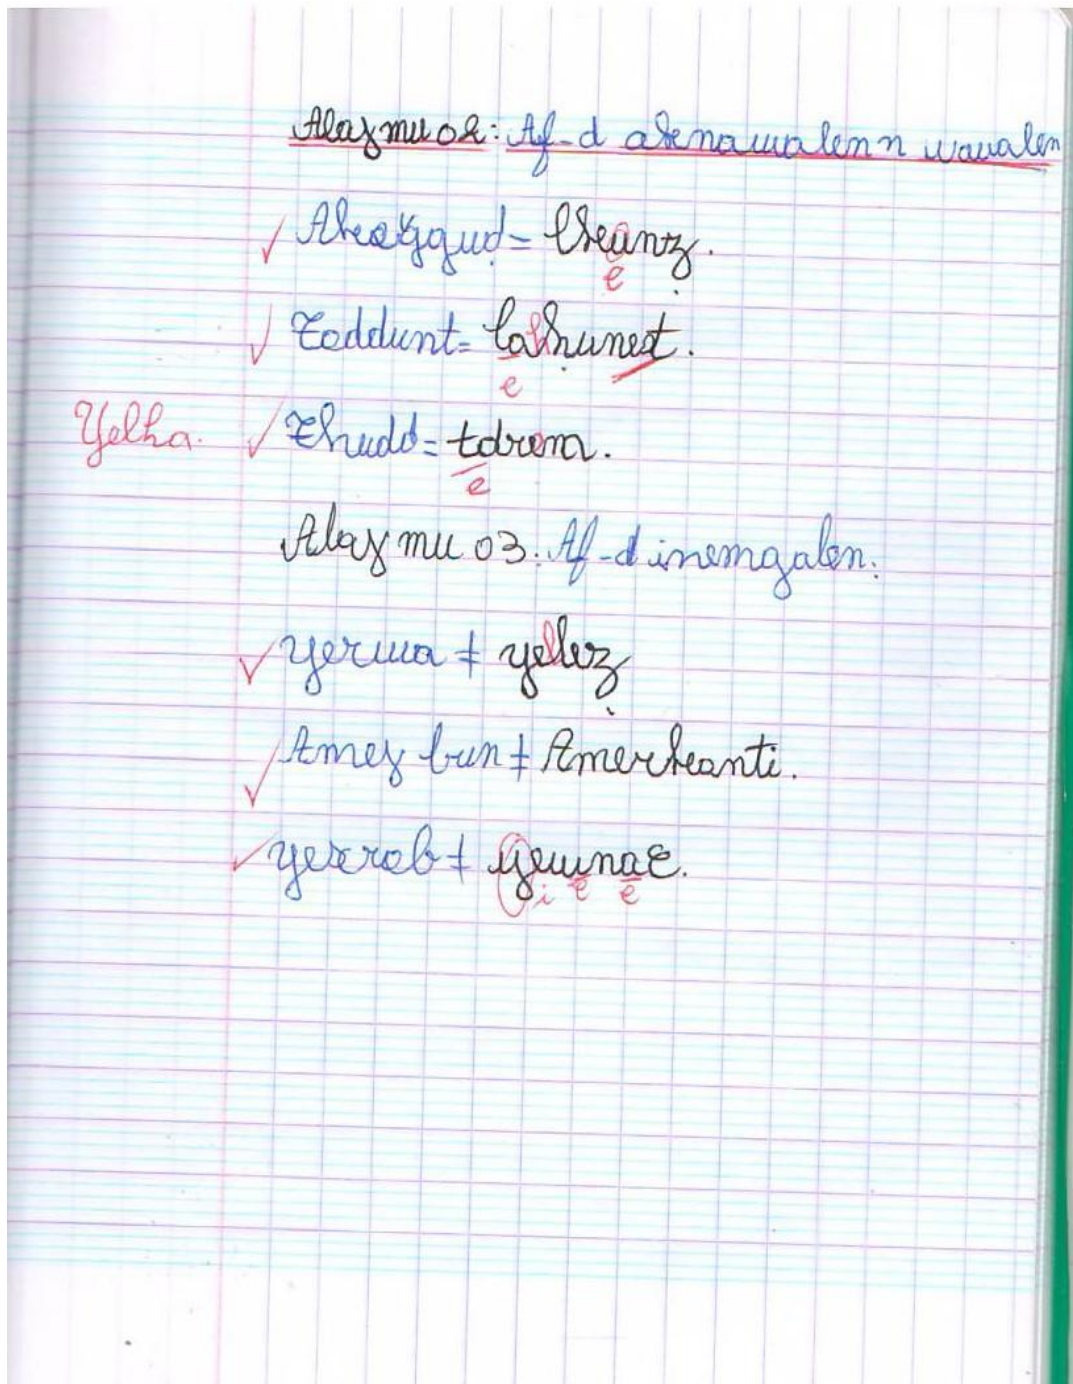 Alaɣmu 02: Af-d aknawalen n wawalen
Akeṛɣquḍ = lkeanẓ.
e
Taddunt = laḥunest.
e
Yelha. Thudd = tdrem.
e
Alaɣmu 03: Af-d inemgalen.
yerwa ≠ yelleẓ
Ameɣbun ≠ Amerkanti.
yexreb ≠ yewnaɛ.
i e e